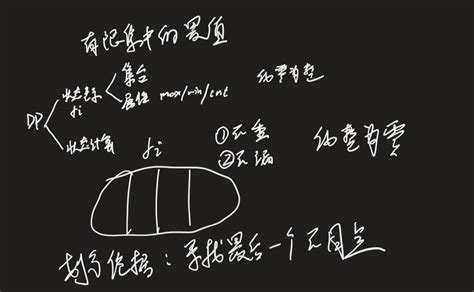 有限集中的最值
DP
状态表示 fi
集合
属性 max/min/cnt
化零为整
状态计算
fi
①不重
②不漏
化整为零
划分依据：寻找最后一个不同点